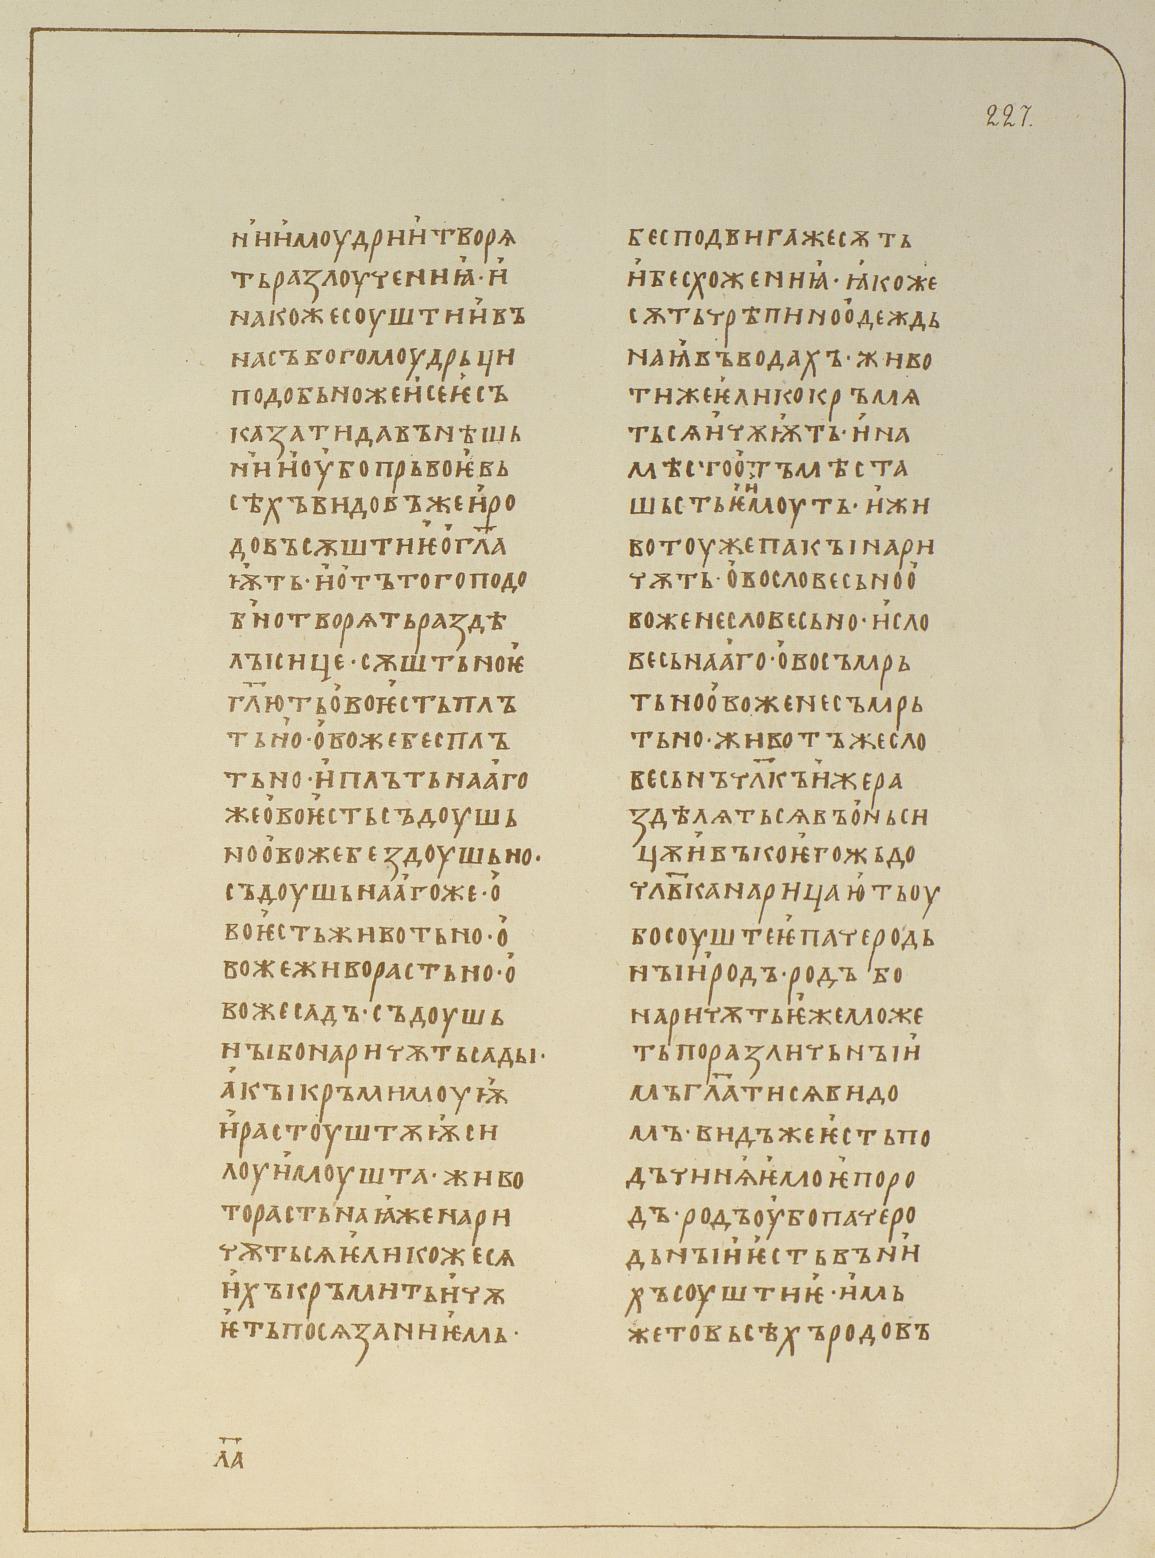 227.
нʼиимоудрии творѧ
тьразлоучениꙗ · и
накожесоуштиивъ
насъбогомоудрьци
подобьножеисеѥсъ
казатидавънѣшь
нʼииоубопрьвоѥвь
сѣхъвидовъжеиро
довъсѫштиѥогл҃а
ѭть · иотътогоподо
бʼнотворѧтьраздѣ
лъıсице · сѫштьноѥ
гл҃ютьовоѥстьплъ
тьно · овожебесплъ
тьно · иплътьнааго
жеовоѥстьсъдоушь
ноовожебездоушьно ·
съдоушьнаагоже · о
воѥстьживотьно · о
вожеживорастьно · о
вожесадъ · съдоушь
нъıбонаричѫтьсадъı ·
акъıкръмимоуѭ
ирастоуштѫѭси
лоуимоушта · живо
торастьнаꙗженари
чѫтьсѧѥликожесѧ
ихъкръмитьичѫ
ѥтьпосѧзаниѥмь ·
л҃а
бесподвигажесѫть
ибесхожениꙗ · ꙗкоже
сѫтьчрѣпиноодеждь
наꙗвъводахъ · живо
тижеѥликокръмѧ
тьсѧичѫѭть · ина
мѣстоотъмѣста
шьстьѥиимоуть · ижи
вотоужепакъıнари
чѫть · овословесьноо
воженесловесьно · исло
весьнааго · овосъмрь
тьноовоженесъмрь
тьно · животъжесло
весьнъчл҃къижера
здѣлѧтьсѧвъоньси
цѫивъıкоѥгожьдо
члв҃канарицаютьоу
босоуштеѥпачеродь
нъıиродъ · родъ бо
наричѫтьѥжеможе
тьпоразличьнъıи
мъгл҃атисѧвидо
мъ · видъжеѥстьпо
дъчинѧѥмоѥпоро
дъ · родъоубопачеро
дьнъıиѥстьвъни
хъсоуштиѥ · имь
жетовьсѣхъродовъ